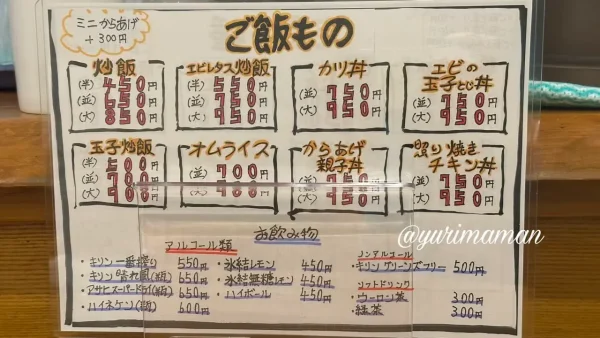 ミニからあげ
+300円
ご飯もの
炒飯
(半) 450円
(並) 650円
(大) 850円
エビレタス炒飯
(半) 550円
(並) 750円
(大) 950円
カツ丼
(並) 750円
(大) 950円
エビの
玉子とじ丼
(並) 750円
(大) 950円
玉子炒飯
(半) 500円
(並) 700円
(大) 900円
オムライス
(並) 700円
(大) 900円
からあげ
親子丼
(並) 750円
(大) 950円
照り焼き
チキン丼
(並) 750円
(大) 950円
@yurimaman
お飲み物
アルコール類
・キリン一番搾り 550円
・キリン晴れ風(瓶) 650円
・アサヒスーパードライ(瓶) 650円
・ハイネケン(瓶) 600円
・氷結レモン 450円
・氷結無糖レモン 450円
・ハイボール 450円
ノンアルコール
・キリングリーンズフリー 500円
ソフトドリンク
・ウーロン茶 300円
・緑茶 300円